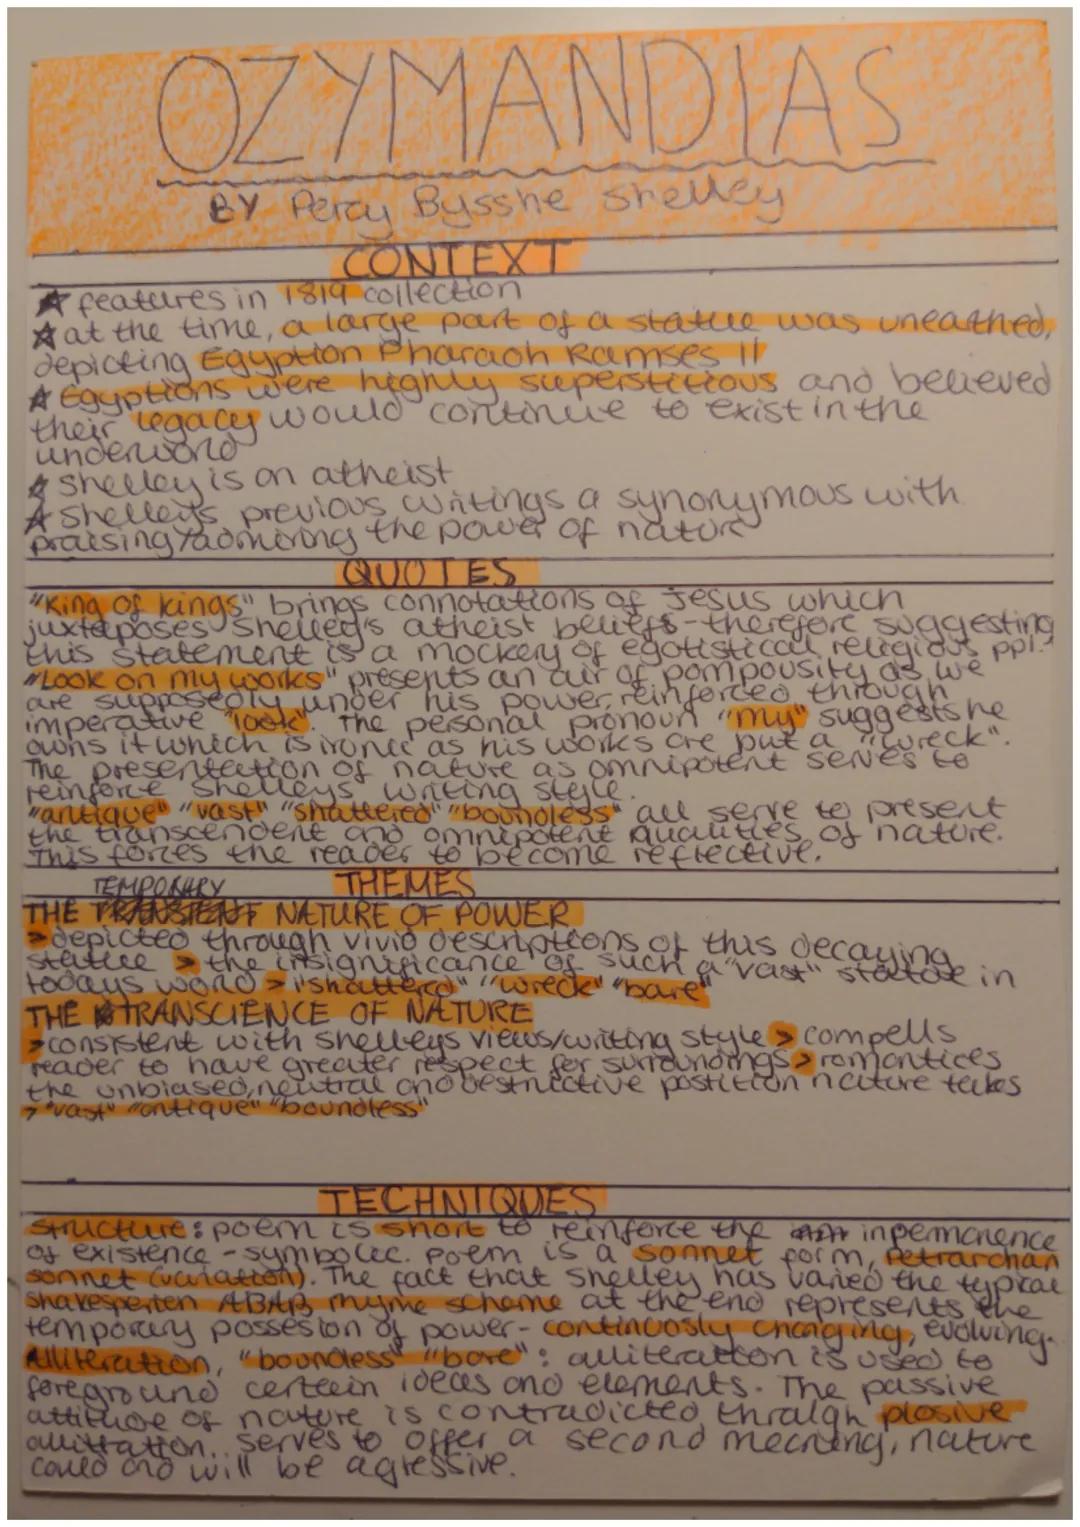 OZYMANDIAS
BY Percy Bysshe Shelley
CONTEXT
★ features in 1819 collection
★ at the time, a large part of a statue was unearthed,
depicting Egyption Pharaoh Ramses II
★ Egyptions were highly superstitious and believed
their legacy would continue to exist in the
underworld
★ Shelley is an atheist
★ Shelley's previous writings a synonymous with
praising/admiring the power of nature
QUOTES
"King of kings" brings connotations of Jesus which
juxtaposes Shelley's atheist beliefs - therefore suggesting
this statement is a mockery of egotistical religious ppl.
"Look on my works" presents an air of pompousity as we
are supposedly under his power, reinforced through
imperative "look". The personal pronoun "my" suggests he
owns it which is ironic as his works are but a "wreck".
The presentation of nature as omnipotent serves to
reinforce Shelleys writing style.
"antique" "vast" "shattered" "boundless" all serve to present
the transcendent and omnipotent qualities of nature.
This forces the reader to become reflective.
THEMES
TEMPORARY
THE TRANSIENT NATURE OF POWER
> depicted through vivid descriptions of this decaying
statue > the insignificance of such a "vast" statue in
todays world > "shattered" "wreck" "bare"
THE TRANSCIENCE OF NATURE
> consistent with Shelleys views/writing style > compells
reader to have greater respect for surroundings > romantices
the unbiased, neutral and destructive postition nature takes
> "vast" "antique" "boundless"
TECHNIQUES
structure: poem is short to reinforce the inpermanence
of existence - symbolic. Poem is a sonnet form, petrarchan
sonnet (variation). The fact that Shelley has varied the typical
shakesperien ABAB rhyme scheme at the end represents the
temporary possesion of power - continuosly changing, evolving.
Alliteration, "boundless" "bare": alliteration is used to
foreground certain ideas and elements. The passive
attitude of nature is contradicted through plosive
allittration.. serves to offer a second meaning, nature
could and will be agressive.